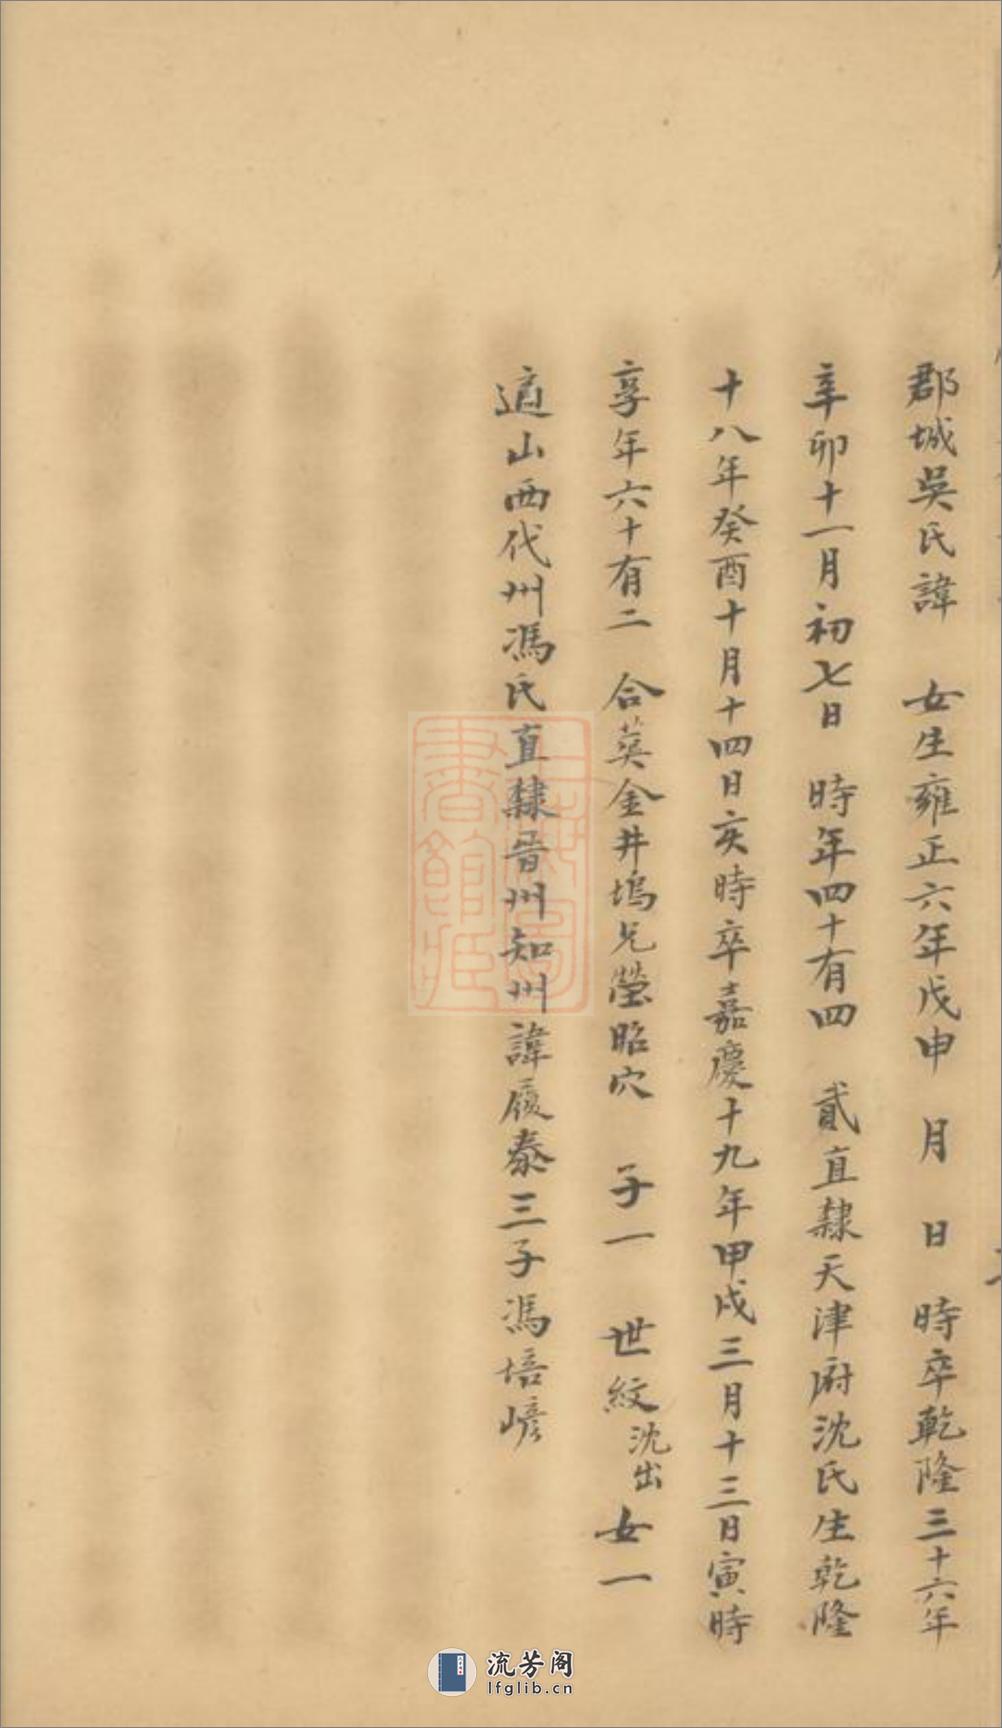 郡城吳氏諱　女生雍正六年戊申　月　日　時卒乾隆三十六年
辛卯十一月初七日　時年四十有四　貳直隸天津府沈氏生乾隆
十八年癸酉十月十四日亥時卒嘉慶十九年甲戌三月十三日寅時
享年六十有二　合葬金井塢兄塋昭穴　子一　世紋沈出女一
適山西代州馮氏直隸晉州知州諱履泰三子馮培嵃
上海圖書館藏
流芳阁
lfglib.cn